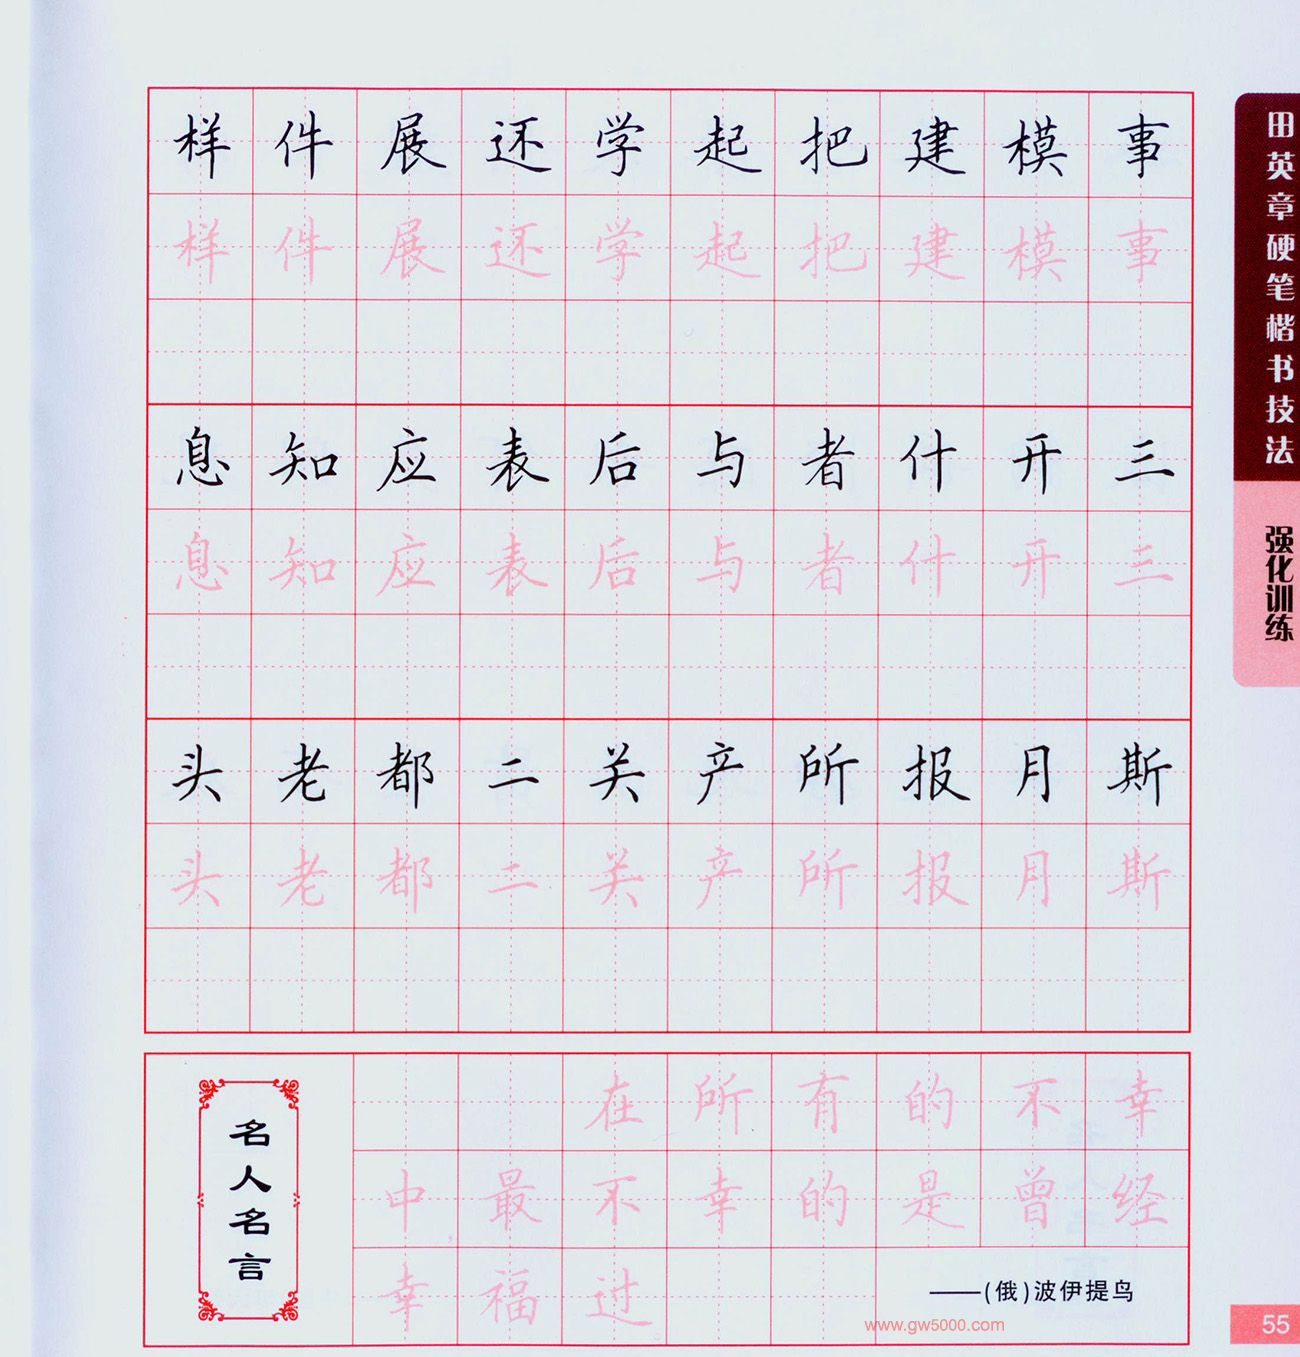 样件展还学起把建模事
样件展还学起把建模事
息知应表后与者什开三
息知应表后与者什开三
头老都二关产所报月斯
头老都二关产所报月斯
名人名言
在所有的不幸
中最不幸的是曾经
幸福过
——(俄)波伊提鸟
www.gw5000.com
田英章硬笔楷书技法
强化训练
55